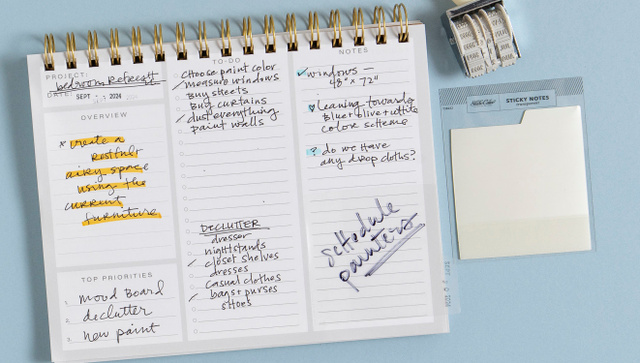 PROJECT:
bedroom Refresh
DATE:
SEPT 2024
OVERVIEW
* create a
restful
airy space
using the
current
furniture
TOP PRIORITIES
1. mood Board
2. declutter
3. new paint
TO-DO
Choose paint color
measure windows
Buy sheets
Buy curtains
dust everything
paint walls
DECLUTTER
dresser
nightstands
closet shelves
dresses
casual clothes
bags + purses
shoes
NOTES
windows —
48" x 72"
leaning towards
Blue + olive + white
color scheme
? do we have
any drop cloths?
schedule
painters
STICKY NOTES